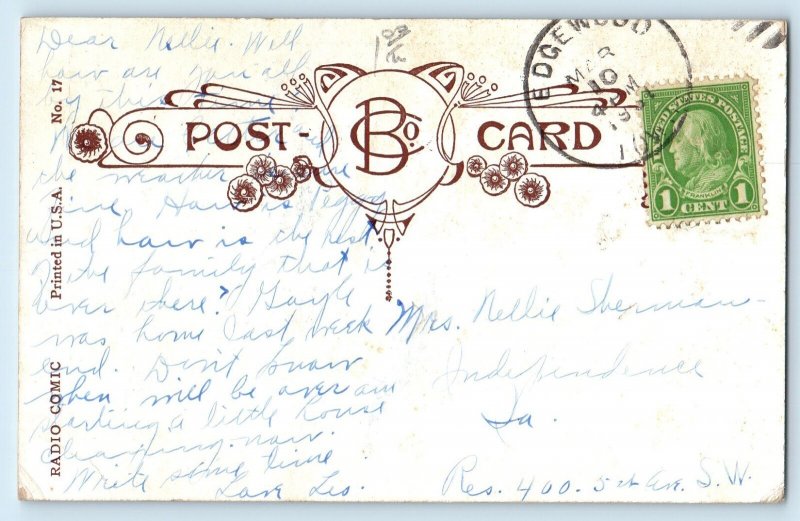 Dear Nellie. Well
how are you all
by this time
the weather is
fine. How is Peggy
and how is the rest
of the family that is
over there? Gayle
was home last week
end. Don't know
when will be over am
starting a little house
cleaning now.
Write some time
Love Leo.
RADIO COMIC Printed in U.S.A. No. 17
POST-CARD
B Co
EDGEWOOD
MAR
10
M
UNITED STATES POSTAGE
FRANKLIN
1 CENT 1
Mrs. Nellie Sherman
Independence
Ia.
Res. 400. 5th Ave. S.W.